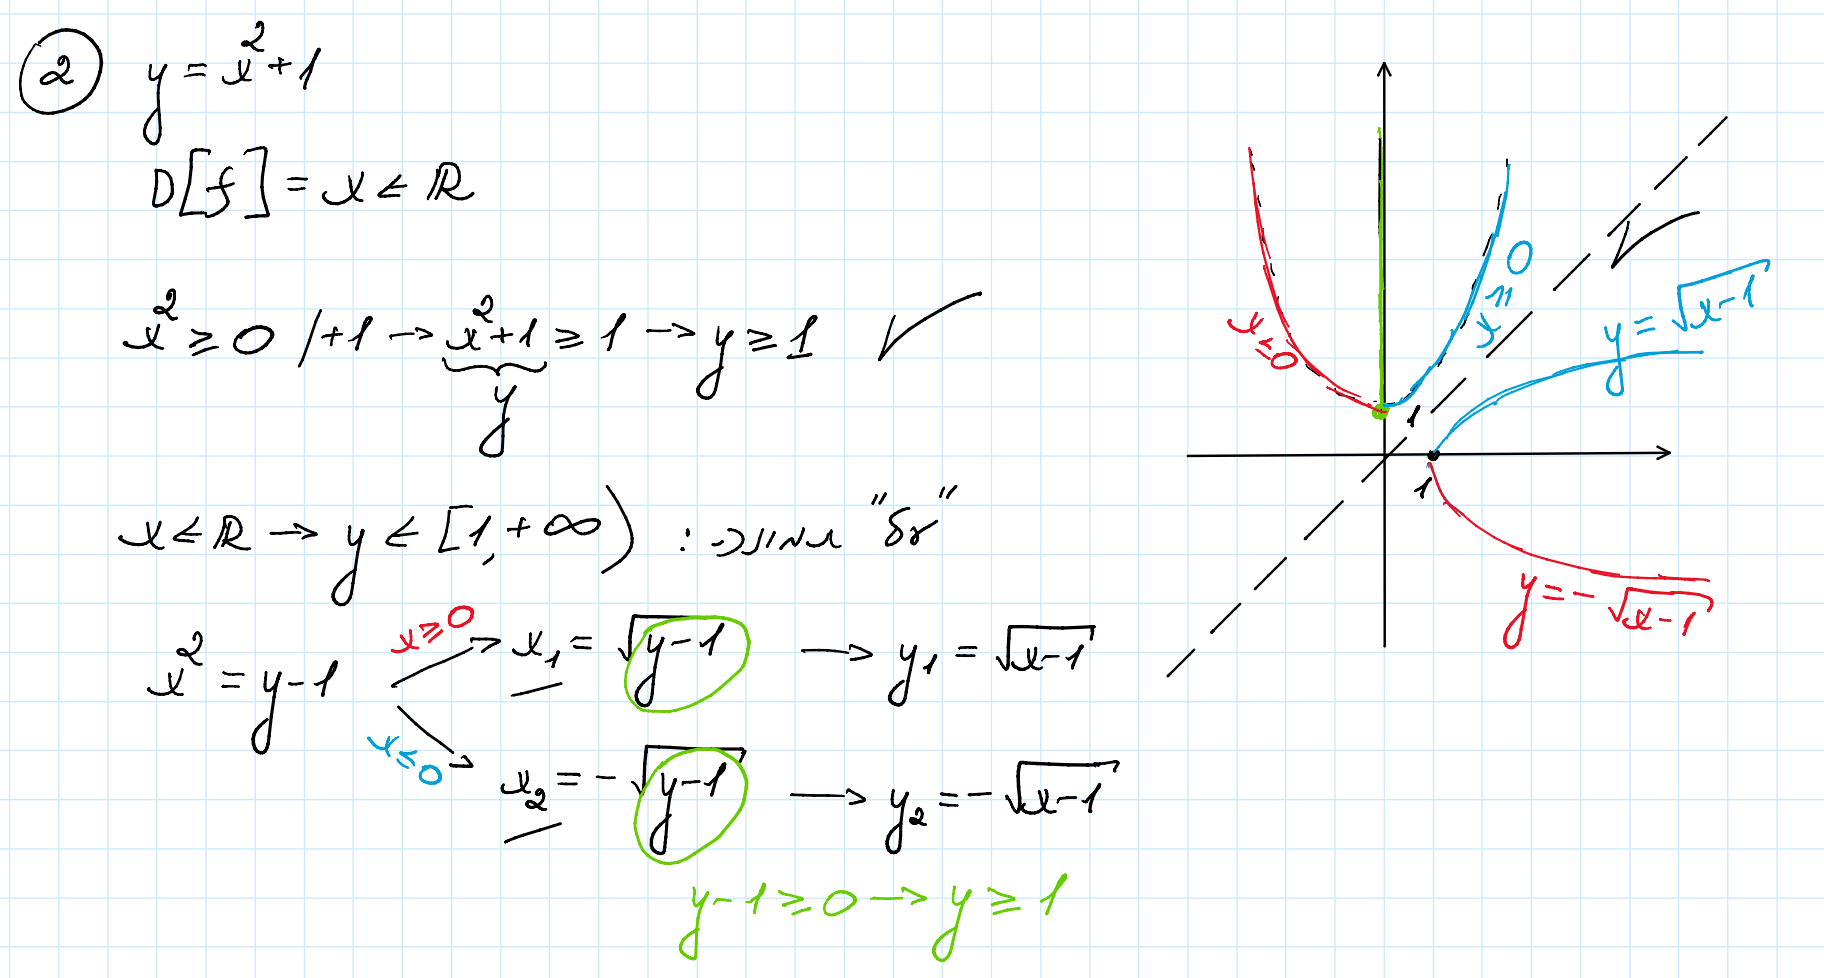 2 y = x² + 1
D[f] = x ∈ ℝ
x² ≥ 0 /+1 → x² + 1 ≥ 1 → y ≥ 1 ✓
y
x ∈ ℝ → y ∈ [1, +∞) :
x ≥ 0
x² = y - 1
x₁ = √(y-1) → y₁ = √(x-1)
x ≤ 0
x₂ = -√(y-1) → y₂ = -√(x-1)
y - 1 ≥ 0 → y ≥ 1
x ≤ 0
x ≥ 0
✓
y = √(x-1)
1
1
y = -√(x-1)